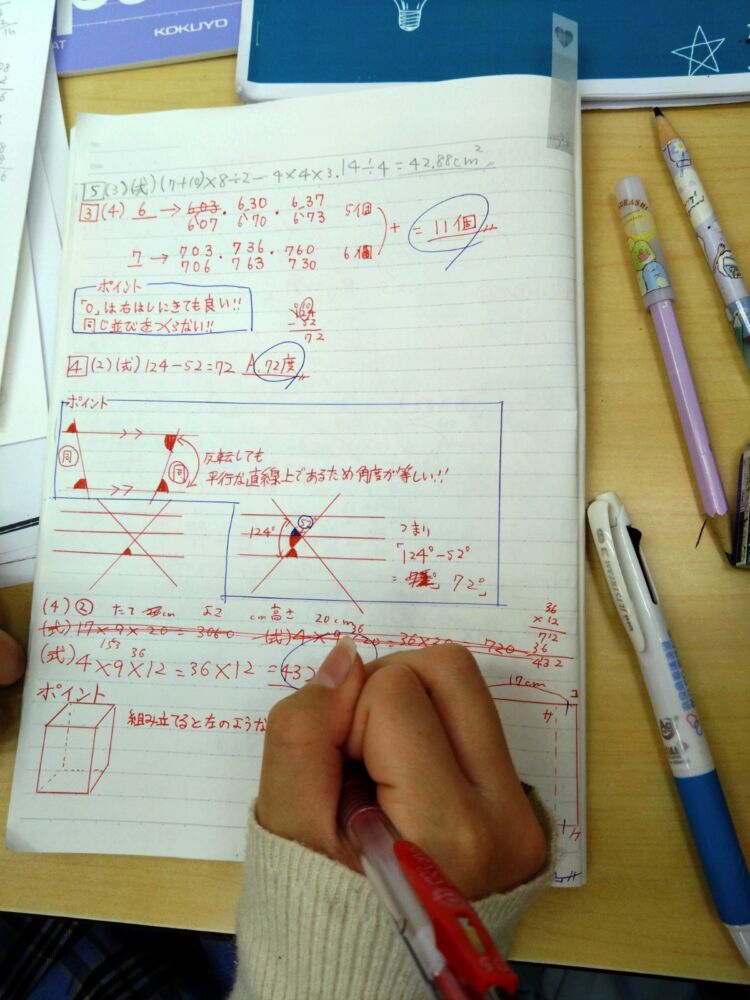 KOKUYO
5 (3)(式)(7+10)×8÷2-4×4×3.14÷4=42.88cm²
3 (4) 6 → 603・630・637 5個
607 670 673
+ = 11個
7 → 703・736・760 6個
706 763 730
ポイント
「0」は右はしにきても良い!!
同じ並びをつくらない!!
124
-52
72
4 (2)(式)124-52=72 A,72度
ポイント
同
同
反転しても
平行な直線上であるため角度が等しい!!
124°
52
つまり
「124°-52°
= 72°」
(4) ② たて cm よこ cm 高さ 20cm
(式) 17×9×20=3060 (式) 4×9×20=36×20=720
153
36
(式) 4×9×12=36×12=432
36
36
×12
712
36
432
ポイント
組み立てると左のような
17cm